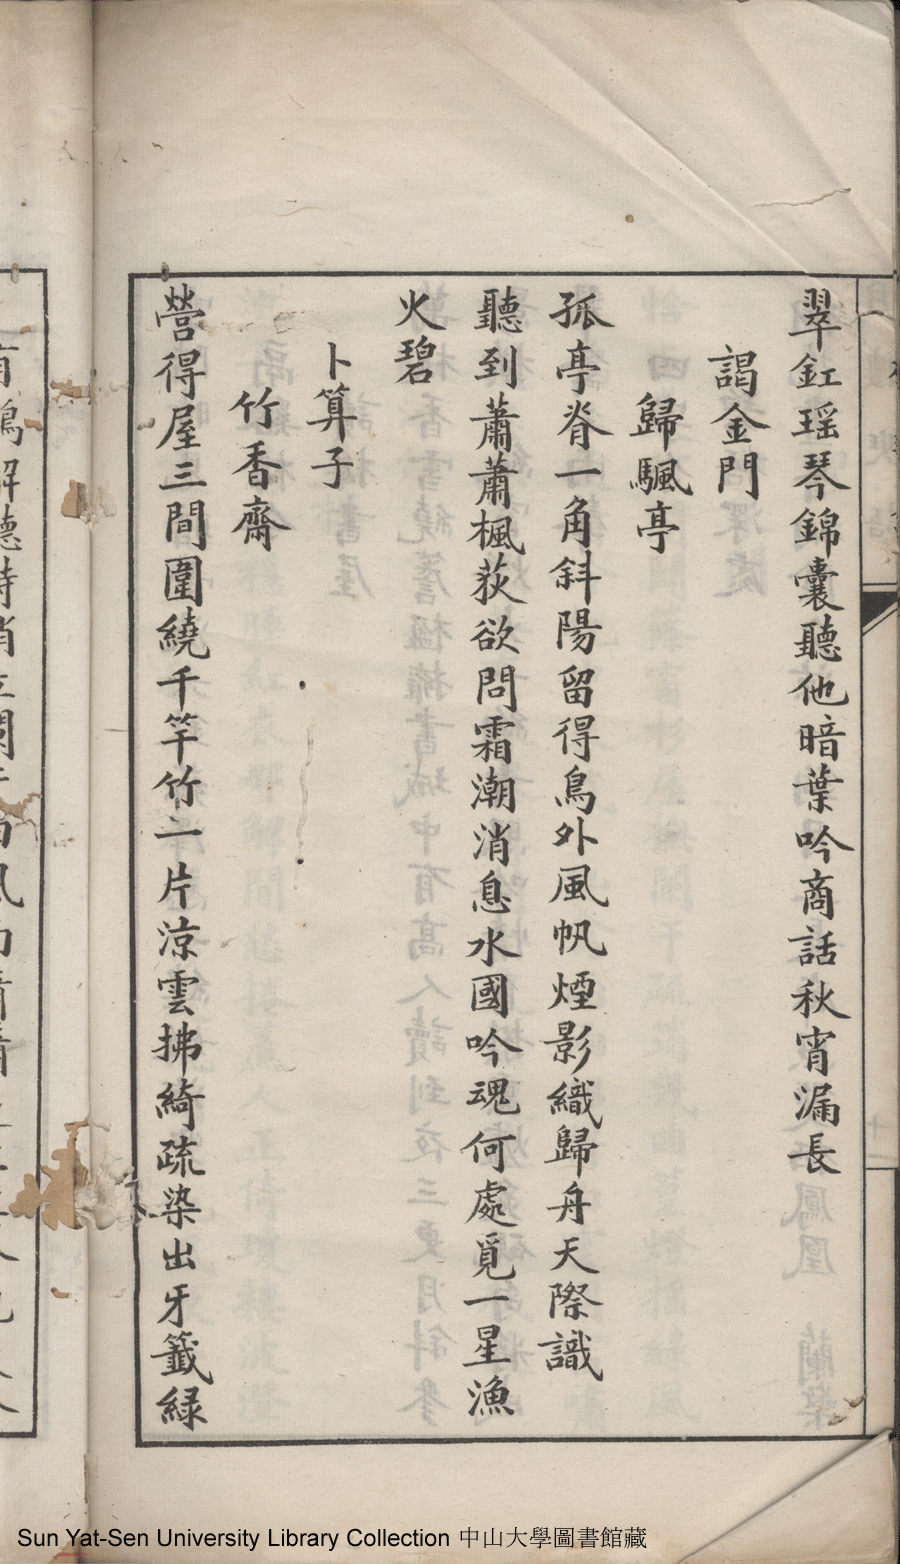 翠釭瑤琴錦囊聽他暗葉吟商話秋宵漏長
謁金門
歸颿亭
孤亭脊一角斜陽留得鳥外風帆煙影織歸舟天際識
聽到蕭蕭楓荻欲問霜潮消息水國吟魂何處覓一星漁
火碧
卜算子
竹香齋
營得屋三間圍繞千竿竹一片涼雲拂綺疏染出牙籤綠
Sun Yat-Sen University Library Collection 中山大學圖書館藏